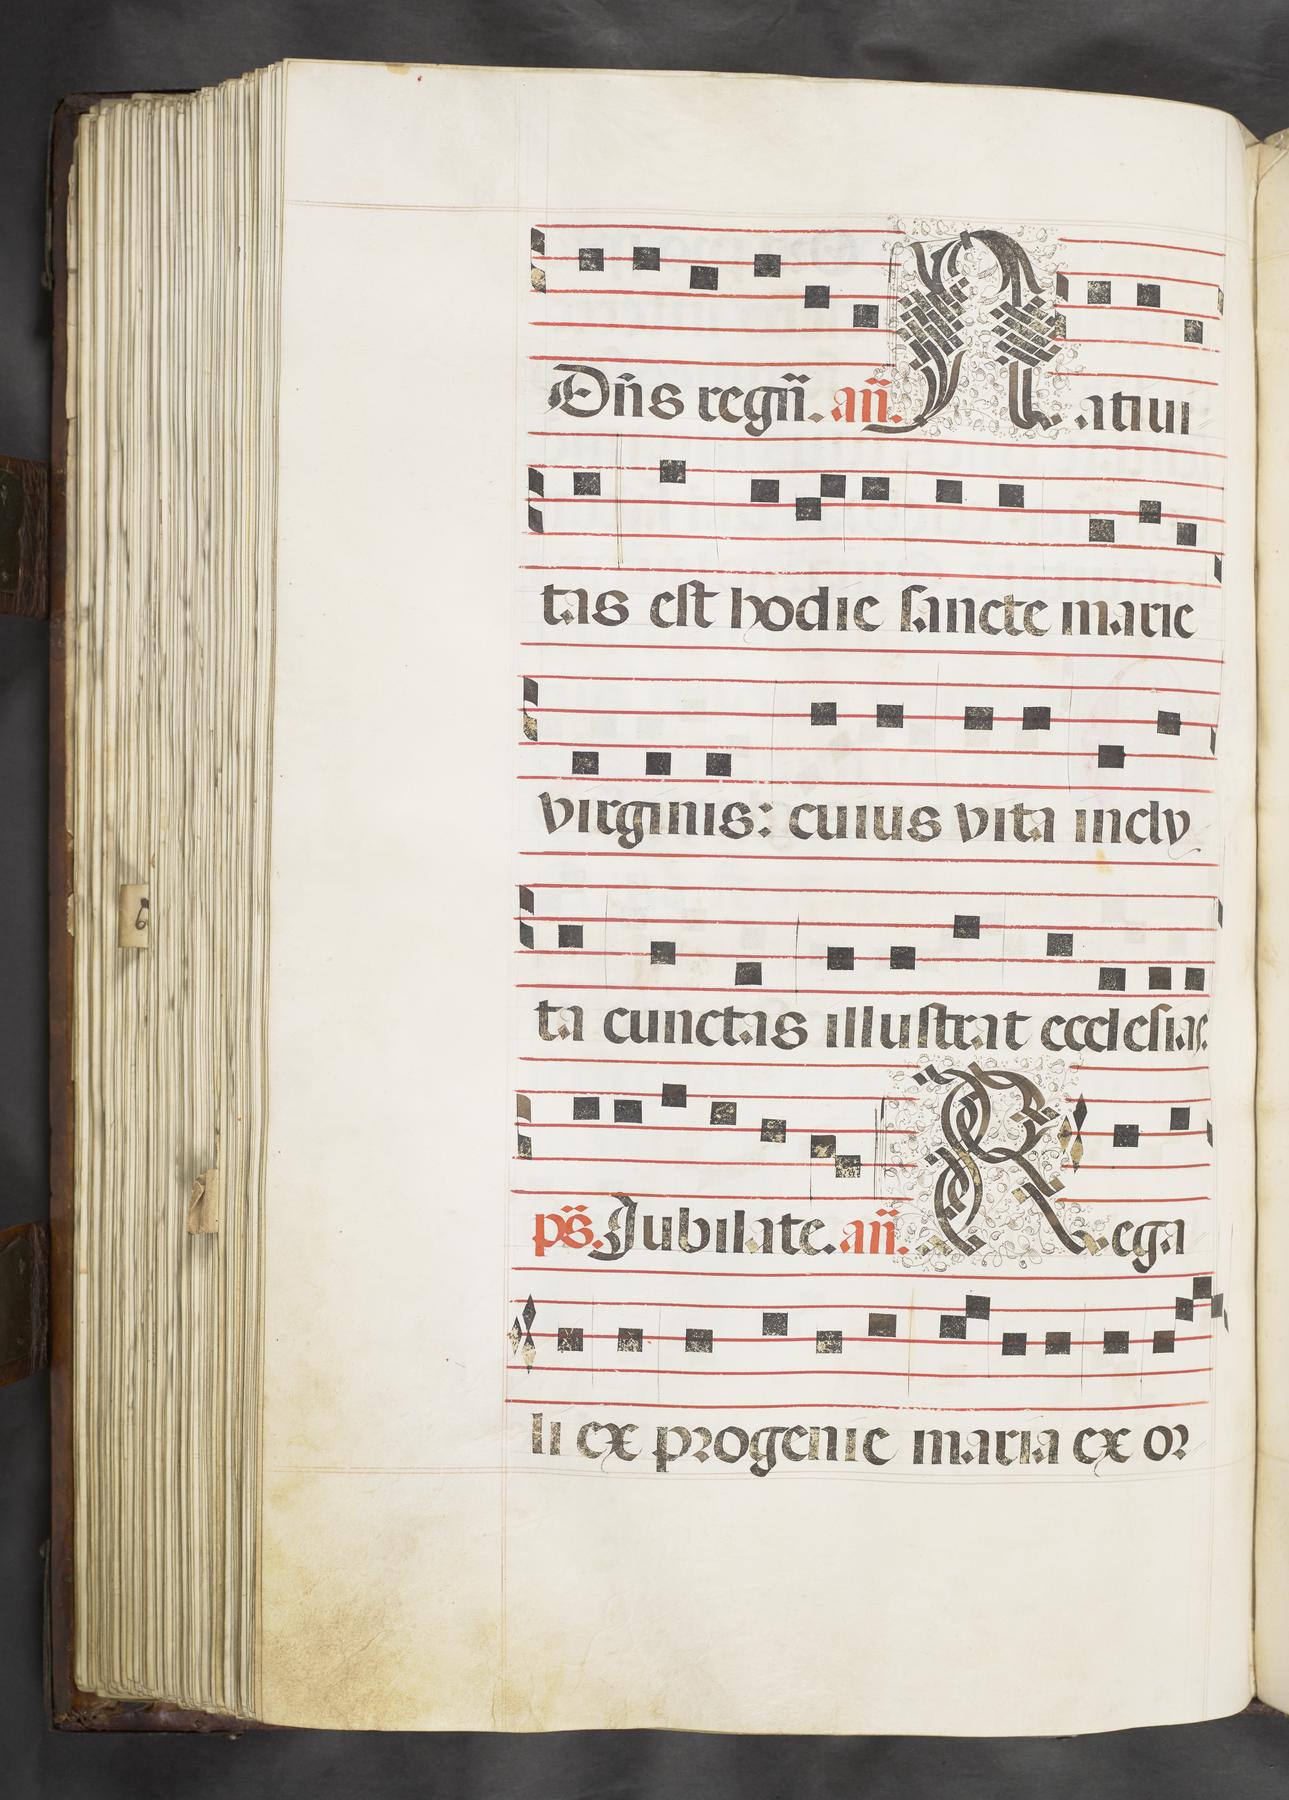 Dñs regñ. añ. Natiui
tas est hodie sancte marie
virginis: cuius vita incly
ta cunctas illustrat ecclesias.
ps. Jubilate. añ. Rega
li ex progenie maria ex or